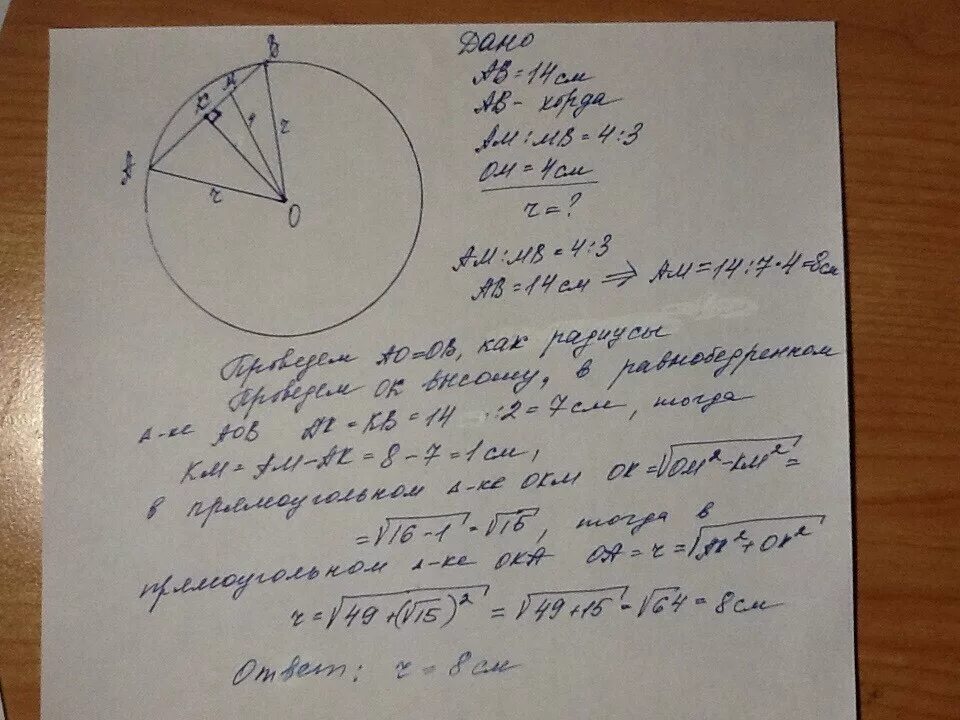 B
M
K
A
4
r
r
O
Дано
AB = 14 см
AB - хорда
AM : MB = 4 : 3
OM = 4 см
r = ?
AM : MB = 4 : 3
AB = 14 см ⇒ AM = 14 : 7 · 4 = 8 см
Проведем AO = OB, как радиусы
Проведем OK высоту, в равнобедренном
Δ-ке AOB AK = KB = 14 : 2 = 7 см, тогда
KM = AM - AK = 8 - 7 = 1 см,
в прямоугольном Δ-ке OKM OK = √OM² - KM² =
= √16 - 1 = √15, тогда в
прямоугольном Δ-ке OKA OA = r = √AK² + OK²
r = √49 + (√15)² = √49 + 15 = √64 = 8 см
Ответ: r = 8 см